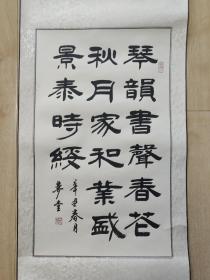 琴韻書聲春花
秋月家和業盛
景泰時綏
辛丑春月